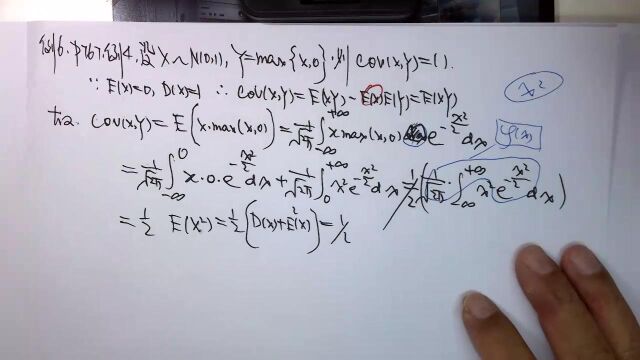 例6. P767.例4. 设X~N(0,1), Y=max{x,0}. 则 cov(x,y)=( ).
∵ E(x)=0, D(x)=1 ∴ cov(x,y)=E(xy)-E(x)E(y)=E(xy)
cov(x,y)=E(x·max(x,0))=1/√2π ∫_{-∞}^{+∞} x max(x,0) e^{-x²/2} dx
=1/√2π ∫_{-∞}^{0} x·0·e^{-x²/2} dx + 1/√2π ∫_{0}^{+∞} x² e^{-x²/2} dx = 1/2 (1/√2π · ∫_{-∞}^{+∞} x² e^{-x²/2} dx)
=1/2 E(x²)=1/2 (D(x)+E²(x))=1/2
x²
φ(x)